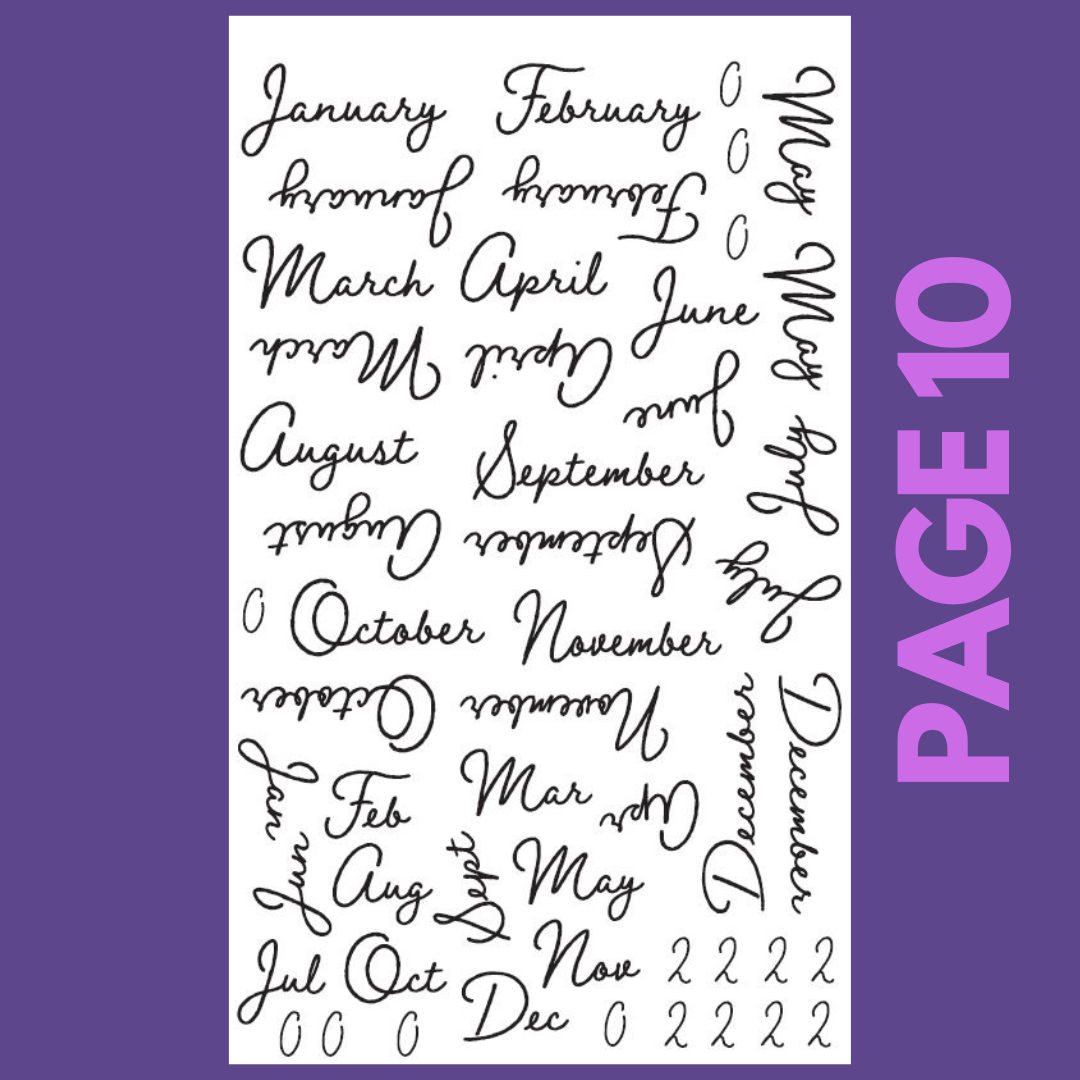 January February 0 May
0
January February
0
March April June May
March April June
August September July
August September July
0 October November
October November December December
Jan Feb Mar Apr
Jun Aug Sept May
Jul Oct Nov 2 2 2 2
Dec
0 0 0 0 2 2 2 2
PAGE 10